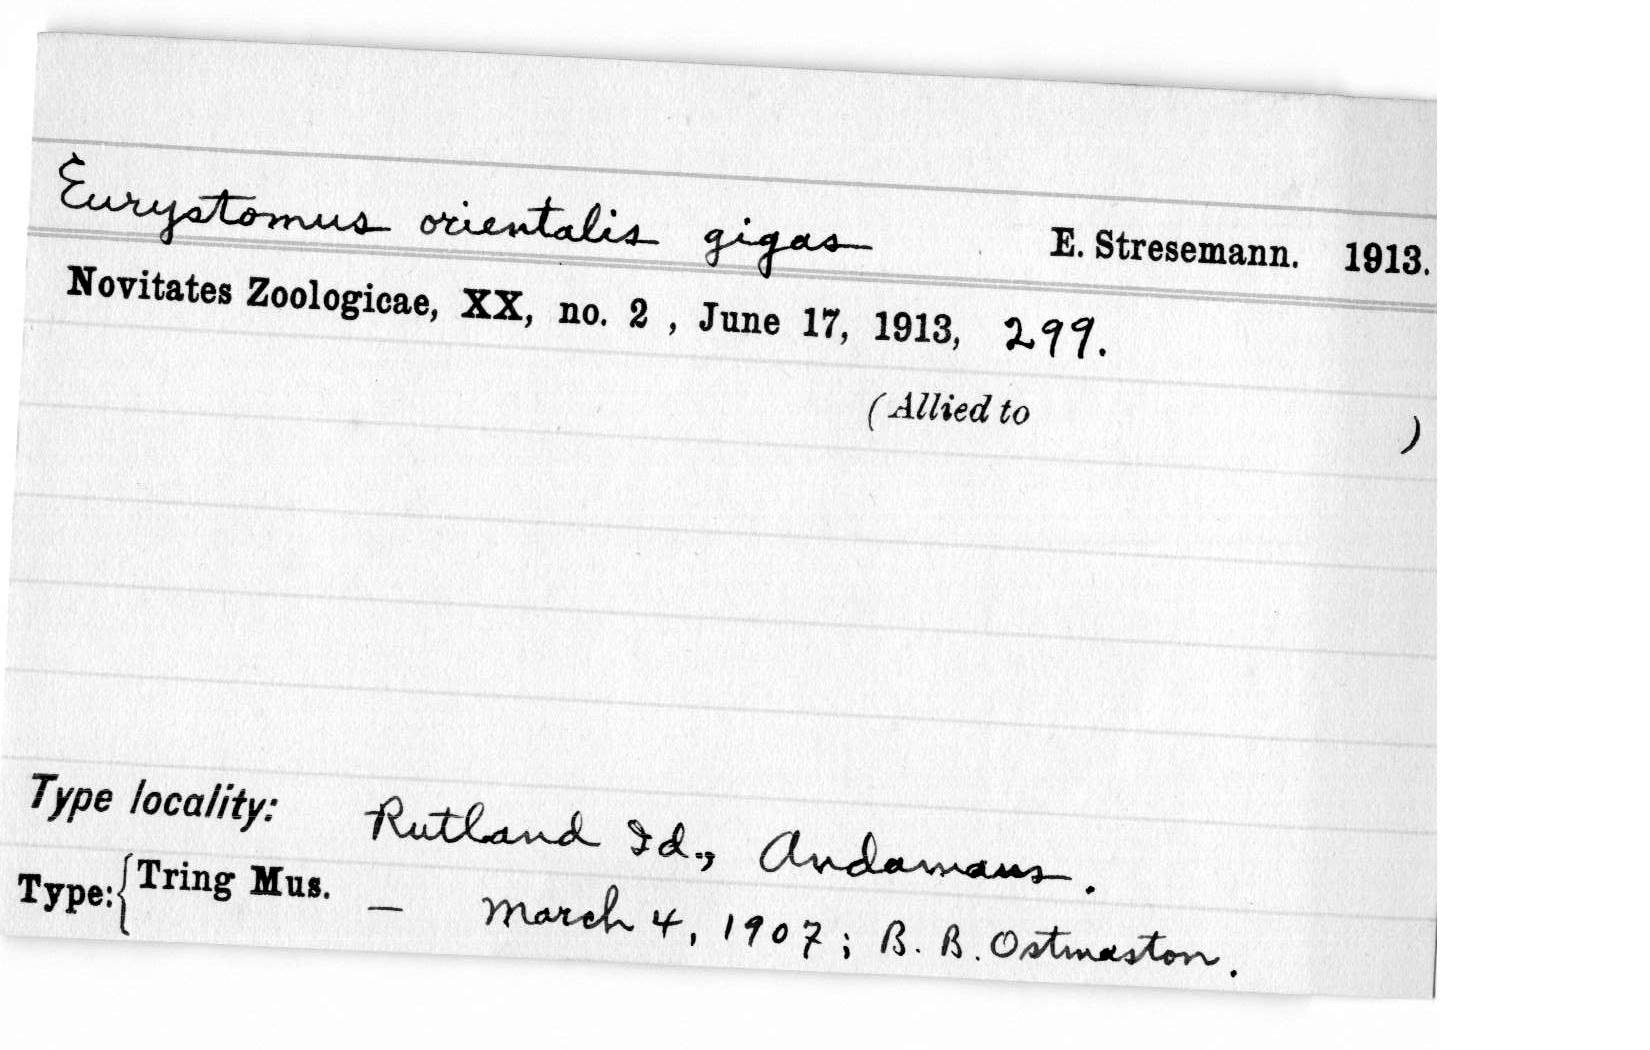 Eurystomus orientalis gigas E. Stresemann. 1913.
Novitates Zoologicae, XX, no. 2 , June 17, 1913, 299.
(Allied to )
Type locality: Rutland Id., Andamans.
Type: { Tring Mus. — March 4, 1907; B. B. Ostmaston.